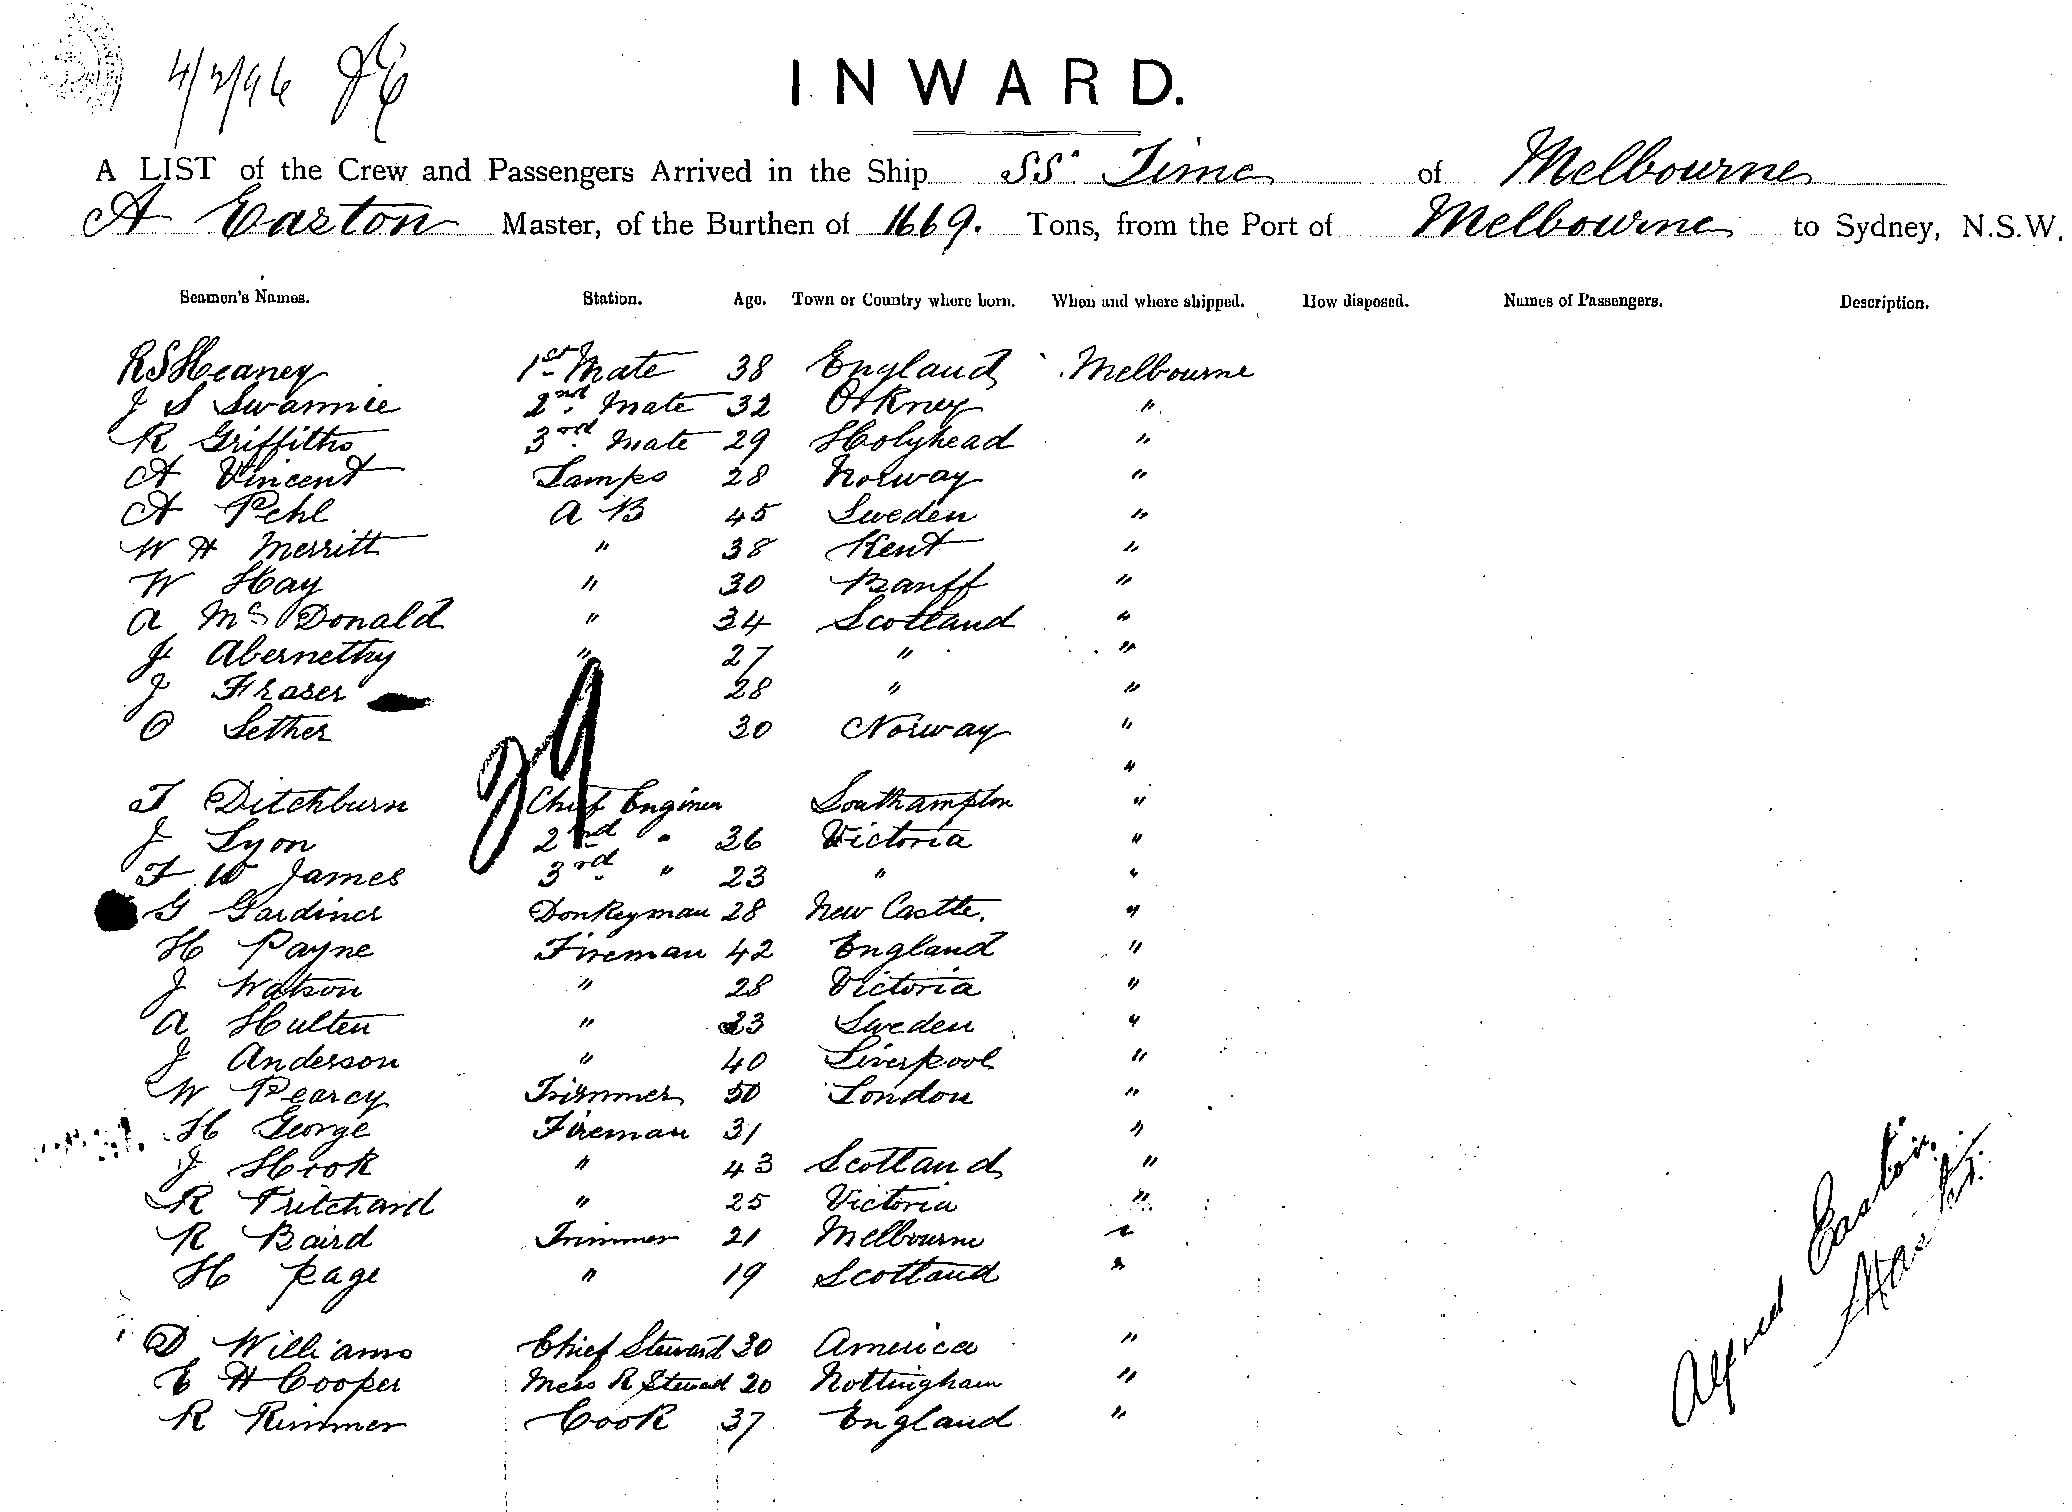 4/2/96
INWARD.
A LIST of the Crew and Passengers Arrived in the Ship SS. Time of Melbourne
A Easton Master, of the Burthen of 1669. Tons, from the Port of Melbourne to Sydney, N.S.W.
Seamen's Names. Station. Age. Town or Country where born. When and where shipped. How disposed. Names of Passengers. Description.
R S Heaney 1st Mate 38 England Melbourne
J S Swannie 2nd Mate 32 Orkney "
R Griffiths 3rd Mate 29 Holyhead "
A Vincent Lamps 28 Norway "
A Pehl A B 45 Sweden "
W H Merritt " 38 Kent "
W Hay " 30 Banff "
A McDonald " 34 Scotland "
J Abernethy " 27 " "
J Fraser 28 " "
O Sether 30 Norway "
"
29
T Ditchburn Chief Enginer Southampton "
J Lyon 2nd " 36 Victoria "
F W James 3rd " 23 " "
G Gardiner Donkeyman 28 New Castle. "
H Payne Fireman 42 England "
J Watson " 28 Victoria "
A Hulten " 23 Sweden "
J Anderson " 40 Liverpool "
W Pearcy Trimmer 50 London "
H George Fireman 31 "
J Hook " 43 Scotland "
R Pritchard " 25 Victoria "
R Baird Trimmer 21 Melbourne "
H Page " 19 Scotland "
D Williams Chief Steward 30 America "
E H Cooper Mess R Steward 20 Nottingham "
R Rimmer Cook 37 England "
Alfred Easton